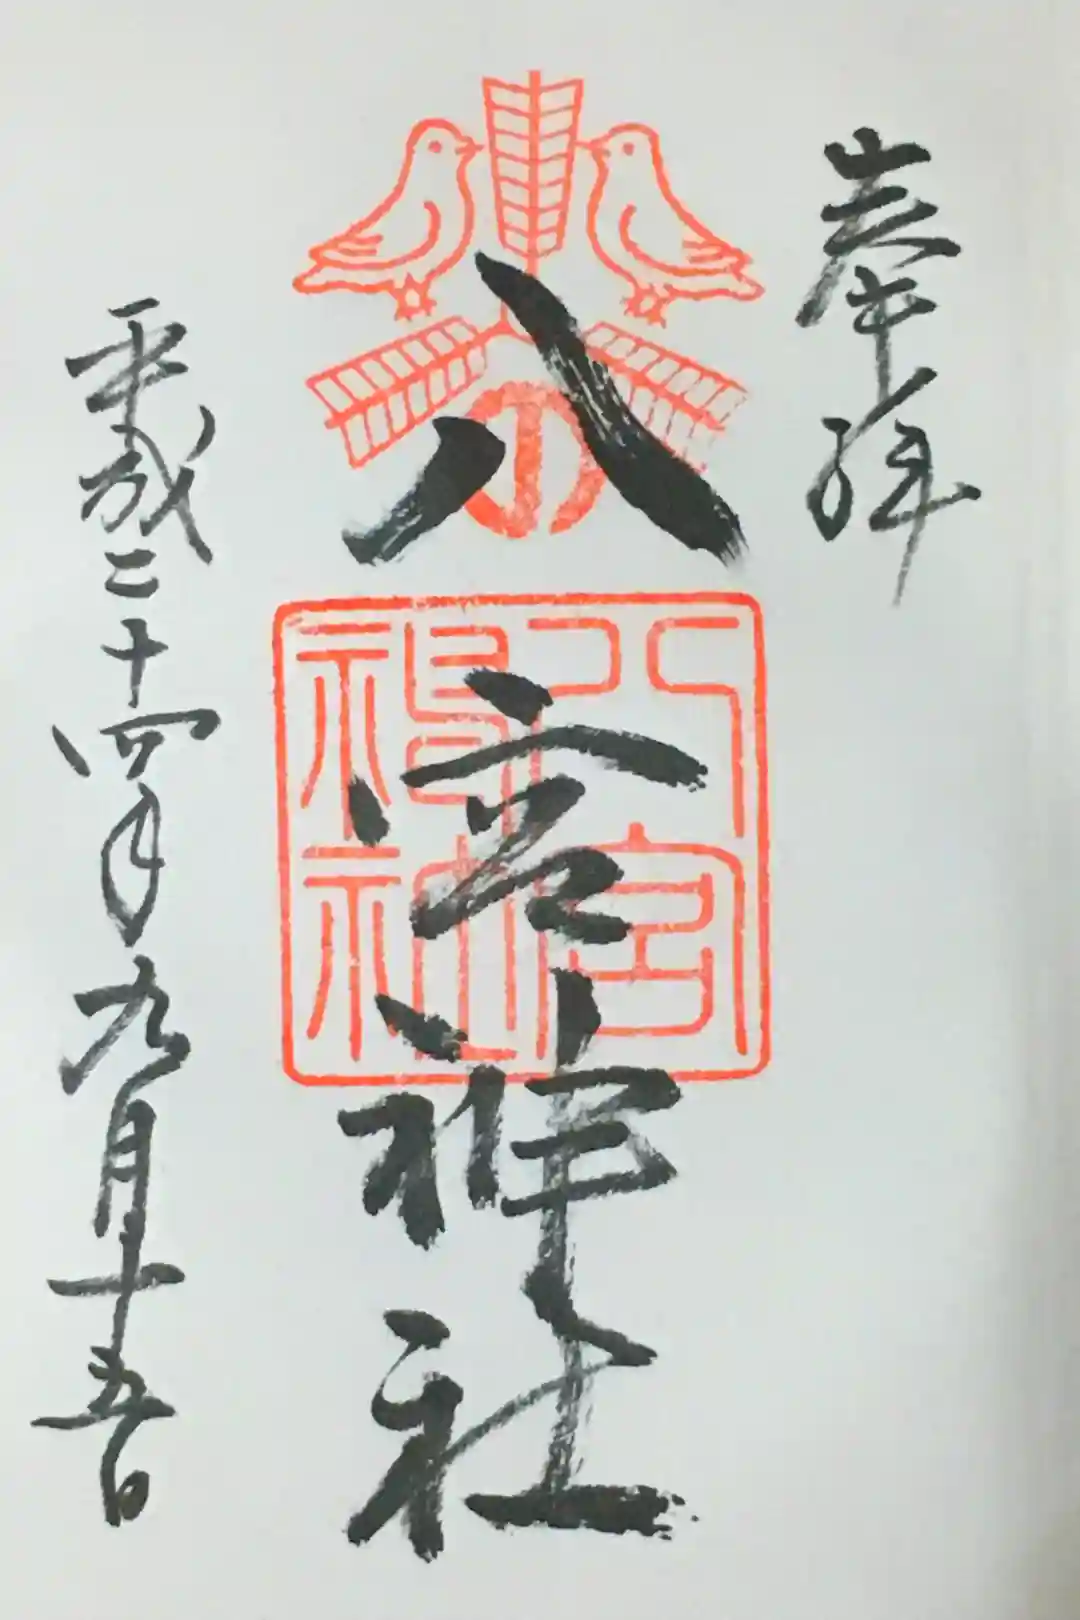 奉拝
八宮神社
八宮神社
平成二十四年九月十五日